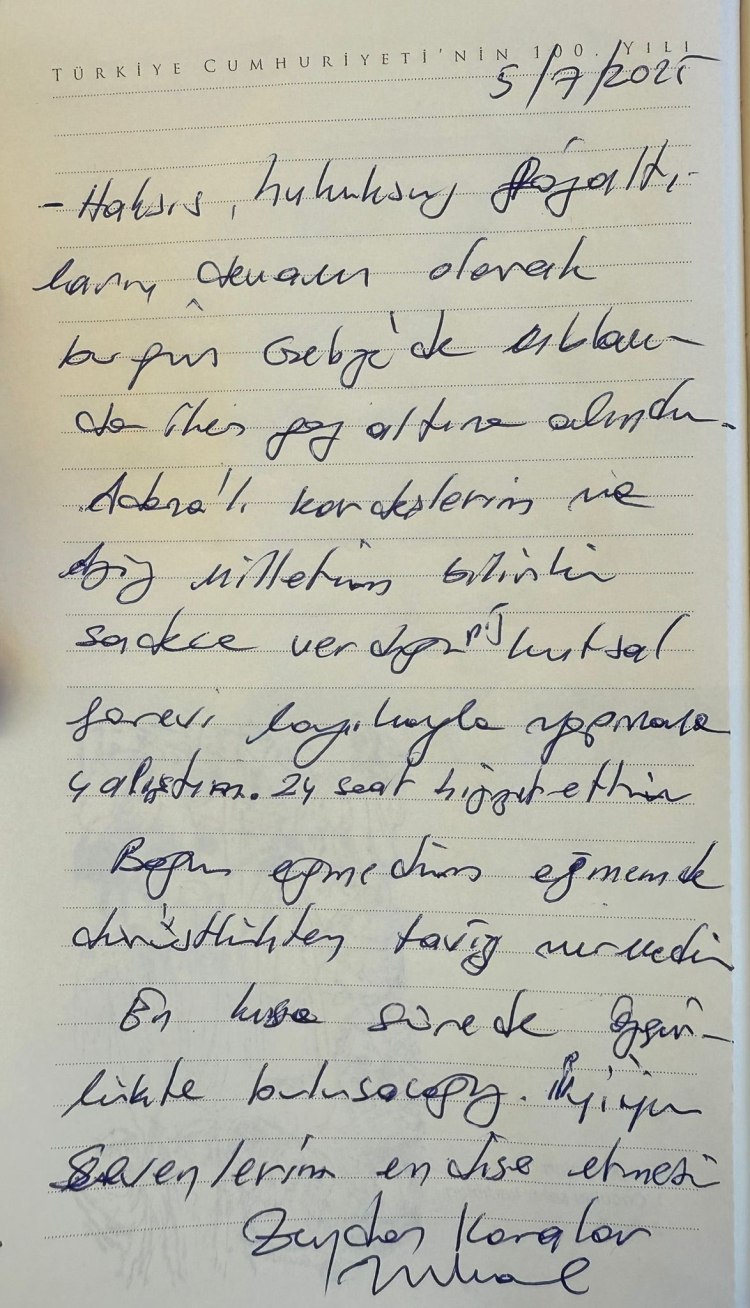 TÜRKİYE CUMHURİYETİ'NİN 100. YILI
5/7/2025
- Haksız, hukuksuz gözaltı-
ların devamı olarak
bugün Gebze'de
gözaltına alındım.
Adana'lı kardeşlerim ve
aziz milletim bilsin ki
sadece verdiğiniz kutsal
görevi layıkıyla yapmaya
çalıştım. 24 saat hizmet ettim
Boyun eğmedim eğmem de
dürüstlükten taviz vermedim
En kısa sürede özgür-
lükte buluşacağız. İyiyim
Sevenlerim endişe etmesin
Zeydan Karalar